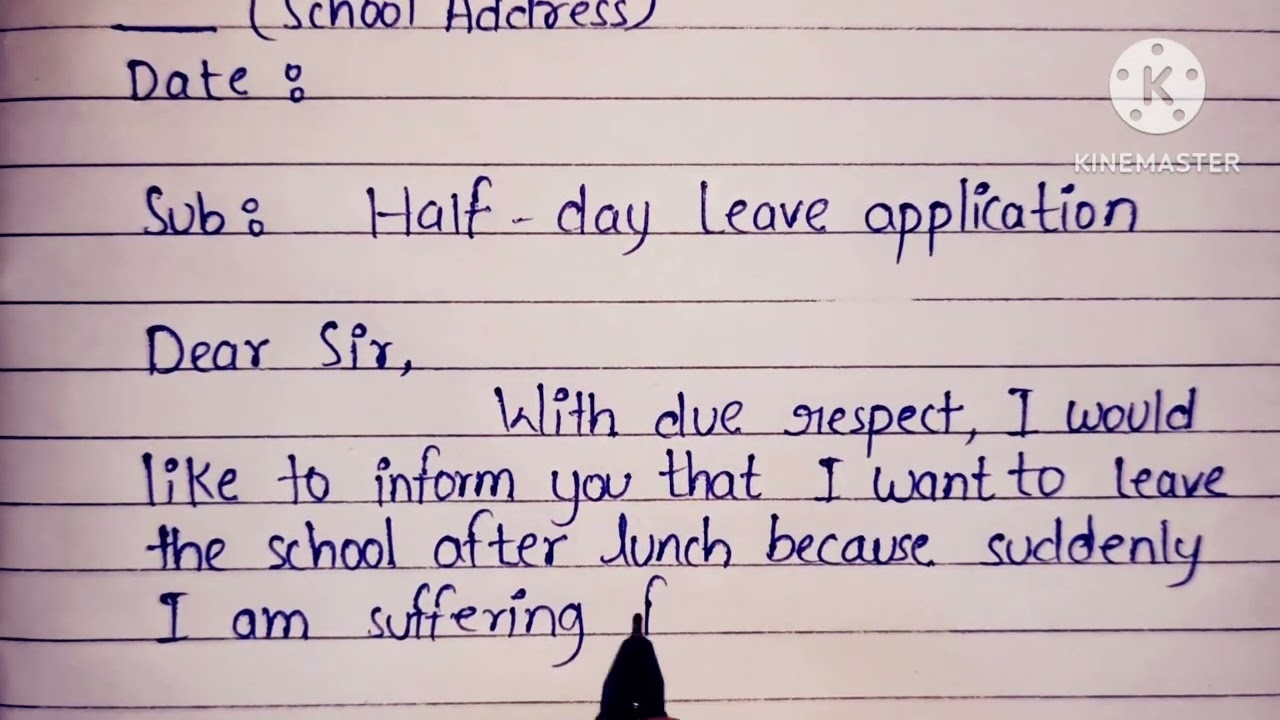 ___ (School Address)
Date :
Sub : Half-day leave application
Dear Sir,
With due respect, I would
like to inform you that I want to leave
the school after lunch because suddenly
I am suffering f
K
KINEMASTER